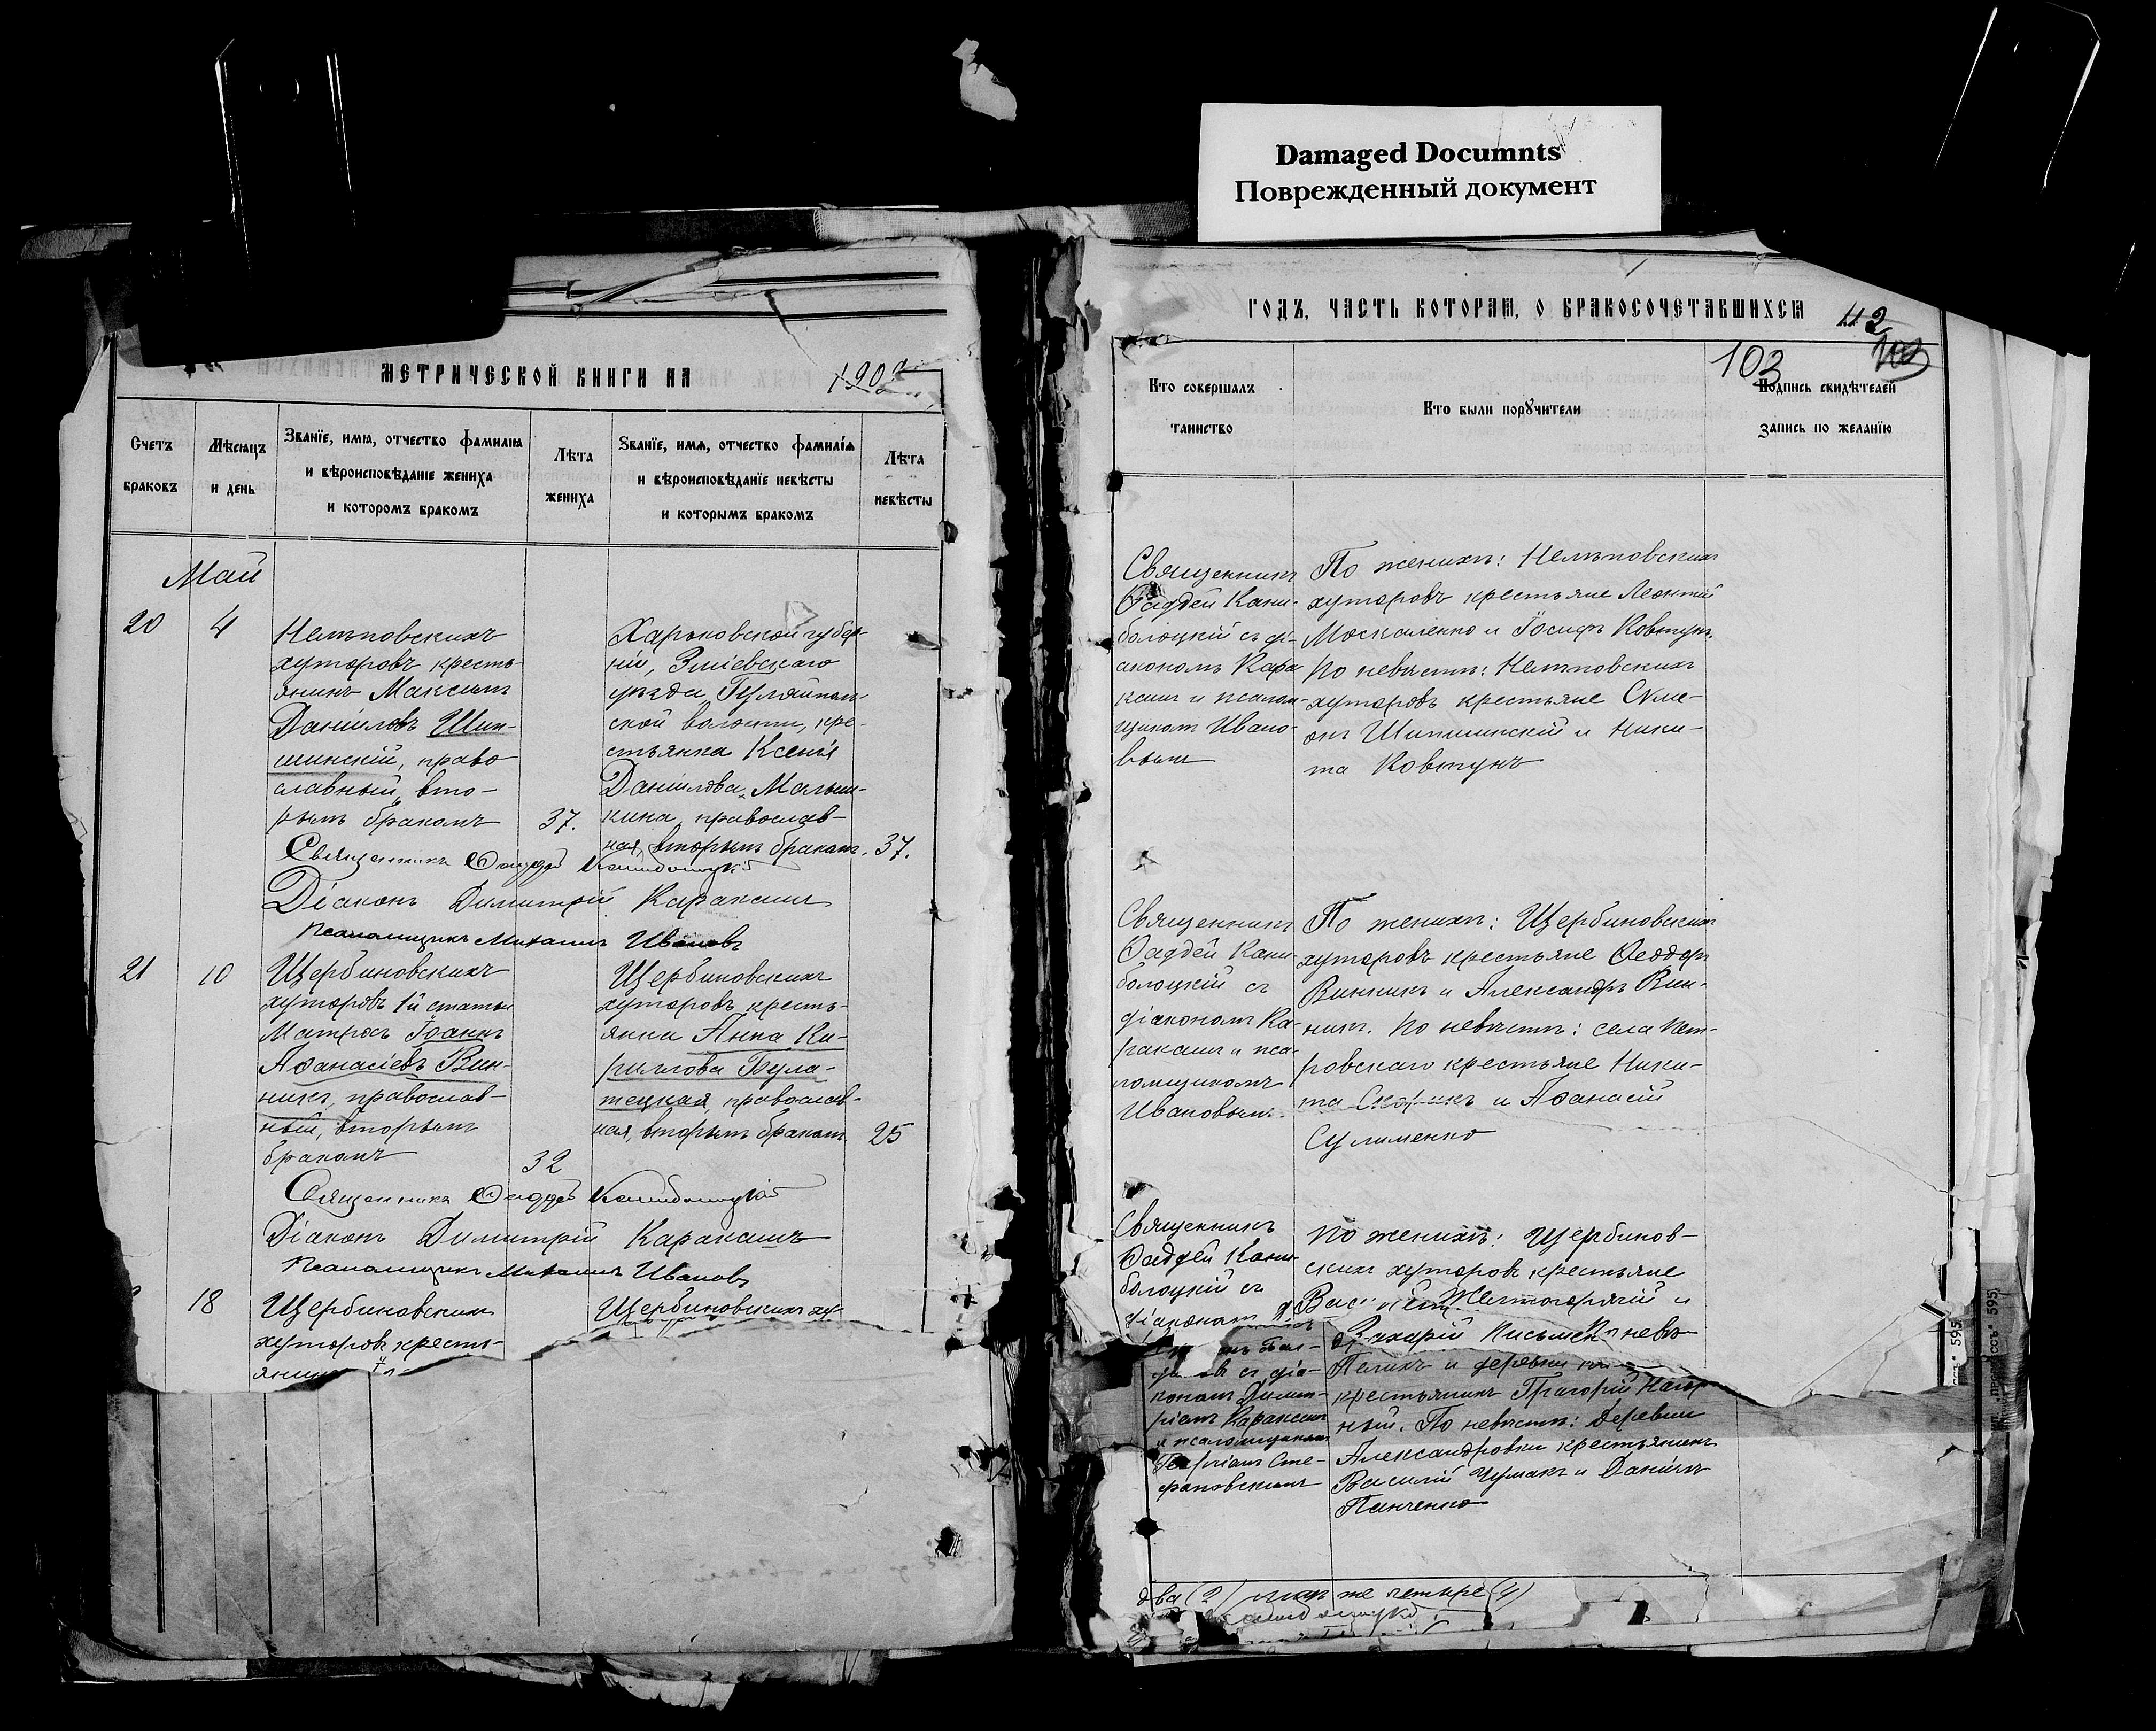 Damaged Documnts
Поврежденный документ
МЕТРИЧЕСКОЙ КНИГИ НА
Счетъ браковъ
Мѣсяцъ и день
Званїе, имя, отчество фамилія
и вѣроисповѣданіе жениха
и которомъ бракомъ
Лѣта жениха
Званїе, имя, отчество фамилїя
и вѣроисповѣданїе невѣсты
и которымъ бракомъ
Лѣта невѣсты
Май
20
4
Нелѣповскихъ
хуторовъ кресть-
янинъ Максимъ
Даніиловъ Шип-
шинскій, право
славный, вто-
рымъ бракомъ
37.
Харьковской губер-
ніи, Зміевскаго
уѣзда, Гуляйполь-
ской волости, кре-
стьянка Ксенія
Даніилова Малыш-
кина, православ-
ная, вторымъ бракомъ.
37.
Священникъ Фаддей Канибολοцкій
Діаконъ Димитрій Каракашъ
Псаломщикъ Михаилъ Ивановъ
21
10
Щербиновскихъ
хуторовъ 1й статьи
Матросъ Іоаннъ
Афанасіевъ Вин-
никъ, православ-
ный, вторымъ
бракомъ
32
Щербиновскихъ
хуторовъ кресть-
янка Анна Ки-
риллова Була-
тецкая, православ-
ная, вторымъ бракомъ
25
Священникъ Фаддей Каниболоцкій
Діаконъ Димитрій Каракашъ
Псаломщикъ Михаилъ Ивановъ
18
Щербиновскихъ
хуторовъ кресть-
янинъ
Щербиновскихъ ху-
ГОДЪ, ЧАСТЬ КОТОРАЯ, О БРАКОСОЧЕТАВШИХСЯ
112
103
Кто совершалъ
таинство
Кто были порꙋчители
Подпись свидѣтелей
запись по желанїю
Священникъ
Фаддей Кани-
болоцкій съ ді-
акономъ Кара
кашъ и псалом-
щикомъ Ивано-
вымъ
По женихѣ: Нелѣповскихъ
хуторовъ крестьяне Леонтій
Москаленко и Іосифъ Ковтунъ.
По невѣстѣ: Нелѣповскихъ
хуторовъ крестьяне Симе-
онъ Шипшинскій и Ники-
та Ковтунъ
Священникъ
Фаддей Кани-
болоцкій съ
діакономъ Ка-
ракашъ и пса-
ломщикомъ
Ивановымъ.
По женихѣ: Щербиновскихъ
хуторовъ крестьяне Феодоръ
Винникъ и Александръ Вин-
никъ. По невѣстѣ: села Пет-
ровскаго крестьяне Ники-
та и Афанасій
Сулименко
Священникъ
Фаддей Кани-
болоцкій съ
діакономъ
По женихѣ: Щербинов-
скихъ хуторовъ крестьяне
Желтогорячій и
Захарій невѣ
съ діа-
кономъ Димит-
ріемъ Каракашъ
и псаломщикомъ
Георгіемъ Сте-
фановскимъ
и деревни
крестьянинъ Григорій
ный. По невѣстѣ: деревни
Александровки крестьянинъ
Василій Чумакъ и Даніилъ
Панченко
два (2) же четыре (4)